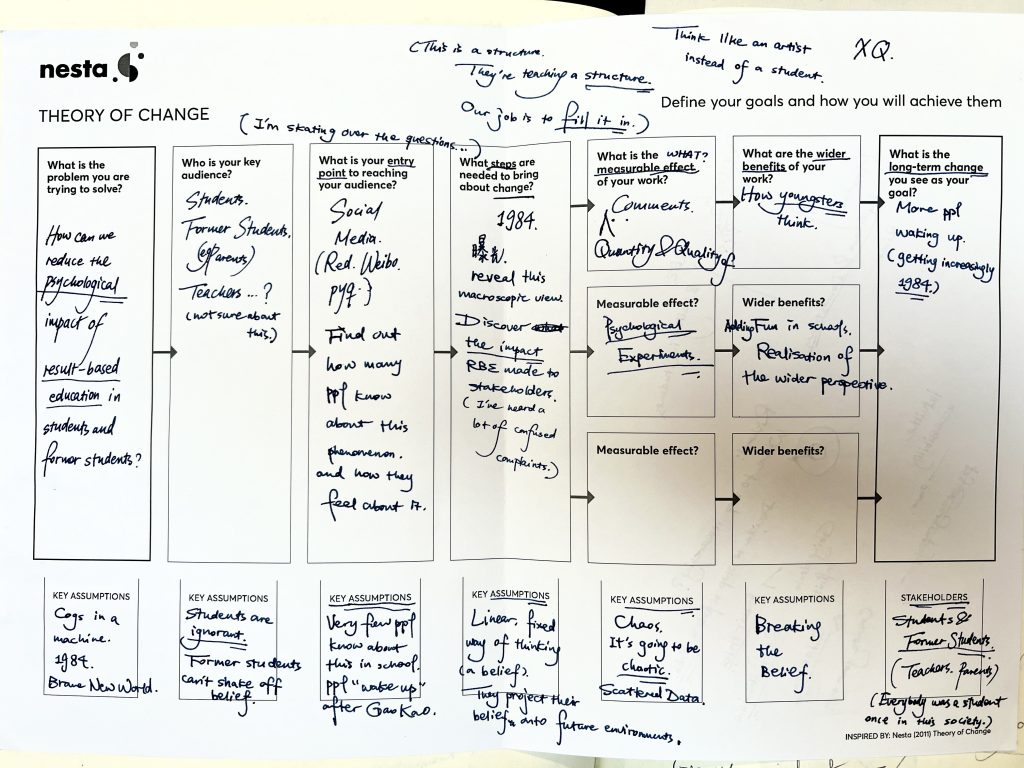 (This is a structure.
They're teaching a structure.
Our job is to fill it in.)
Think like an artist
instead of a student.
XQ.
nesta
THEORY OF CHANGE
Define your goals and how you will achieve them
(I'm skating over the questions...)
What is the
problem you are
trying to solve?
How can we
reduce the
psychological
impact of
result-based
education in
students and
former students?
Who is your key
audience?
Students.
Former Students.
(eg Parents)
Teachers...?
(not sure about
this.)
What is your entry
point to reaching
your audience?
Social
Media.
(Red. Weibo.
pyq.)
Find out
how many
ppl know
about this
phenomenon.
and how they
feel about it.
What steps are
needed to bring
about change?
1984.
reveal this
macroscopic view.
Discover
the impact
RBE made to
stakeholders.
(I've heard a
lot of confused
complaints.)
What is the WHAT?
measurable effect
of your work?
Comments.
Quantity & Quality of
Measurable effect?
Psychological
Experiments.
Measurable effect?
What are the wider
benefits of your
work?
How youngsters
think.
Wider benefits?
Adding Fun in schools.
Realisation of
the wider perspective.
Wider benefits?
What is the
long-term change
you see as your
goal?
More ppl
waking up.
(getting increasingly
1984.)
KEY ASSUMPTIONS
Cogs in a
machine.
1984.
Brave New World.
KEY ASSUMPTIONS
Students are
ignorant.
Former students
can't shake off
belief.
KEY ASSUMPTIONS
Very few ppl
know about
this in school.
ppl "wake up"
after GaoKao.
KEY ASSUMPTIONS
Linear. fixed
way of thinking
(a belief).
They project their
belief onto future environments.
KEY ASSUMPTIONS
Chaos.
It's going to be
chaotic.
Scattered Data.
KEY ASSUMPTIONS
Breaking
the
Belief.
STAKEHOLDERS
Students &
Former Students.
(Teachers. Parents)
(Everybody was a student
once in this society.)
INSPIRED BY: Nesta (2011) Theory of Change